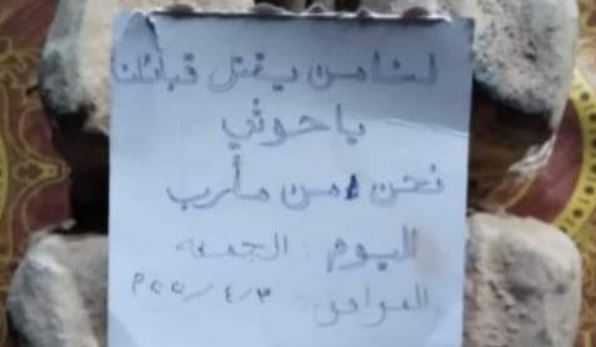 لسنا من يقتل قبائلنا
ياحوثي
نحن من مأرب
اليوم : الجمعه
الموافق ٣/٤/